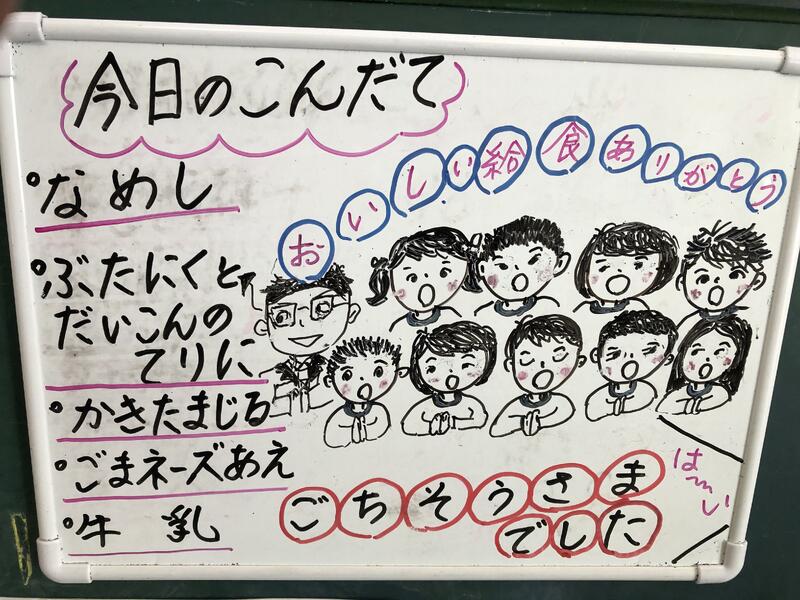 今日のこんだて
おいしい給食ありがとう
なめし
ぶたにくと
だいこんの
てりに
かきたまじる
ごまネーズあえ
牛乳
ごちそうさま
でした
は〜い